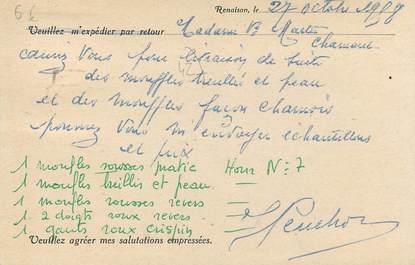 6€
Renaison, le 27 octobre 19
Veuillez m'expédier par retour Madame Vve Martin
Chamoux
Vous pour livraison de suite
des moufles treillis et peau
et des moufles façon chamois
pouvez Vous m'envoyer échantillons
et prix
1 moufles rousses matic Hors N° 7
1 moufles treillis et peau
1 moufles rousses revers
1 2 doigts roux revers
1 gants roux crispin
Veuillez agréer mes salutations empressées.